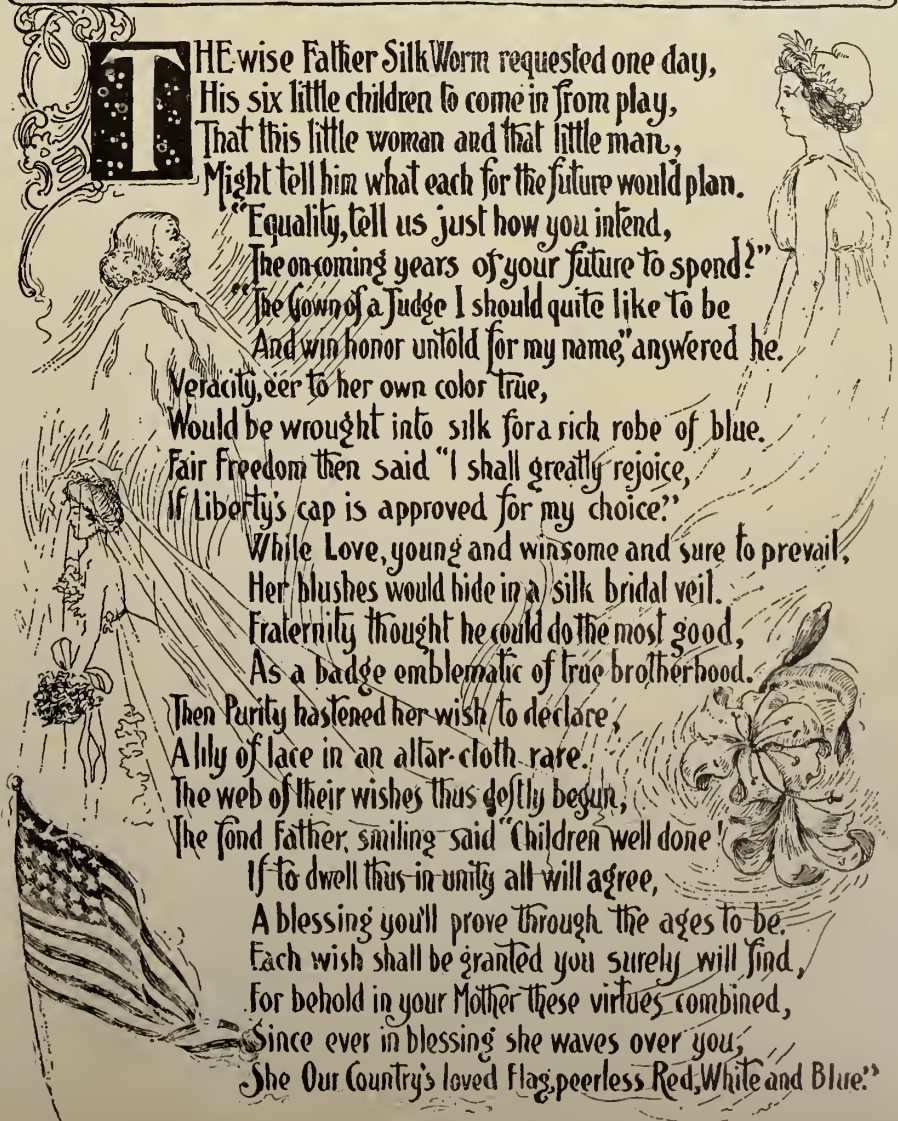 THE wise Father Silk Worm requested one day,
His six little children to come in from play,
That this little woman and that little man,
Might tell him what each for the future would plan.
"Equality, tell us just how you intend,
The on-coming years of your future to spend?"
"The Gown of a Judge I should quite like to be
And win honor untold for my name," answered he.
Veracity, e'er to her own color true,
Would be wrought into silk for a rich robe of blue.
Fair Freedom then said "I shall greatly rejoice,
If Liberty's cap is approved for my choice."
While Love, young and winsome and sure to prevail,
Her blushes would hide in a silk bridal veil.
Fraternity thought he could do the most good,
As a badge emblematic of true brotherhood.
Then Purity hastened her wish to declare,
A lily of lace in an altar-cloth rare.
The web of their wishes thus deftly begun,
The fond Father, smiling said "Children well done!
If to dwell thus in unity all will agree,
A blessing you'll prove through the ages to be.
Each wish shall be granted you surely will find,
For behold in your Mother these virtues combined,
Since ever in blessing she waves over you;
She Our Country's loved Flag, peerless Red, White and Blue."